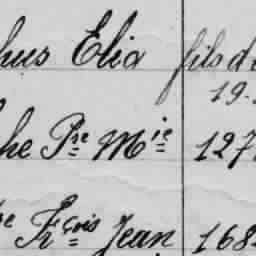 hus Elia fils d
19.
he Pre Mie 127
Fçois Jean 168